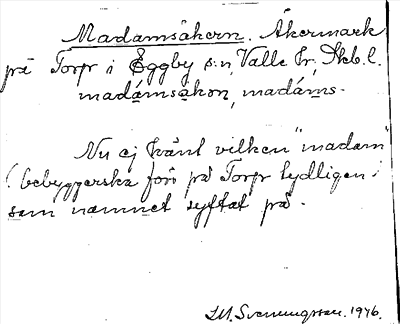 Madamsåkern. Åkermark
på Torpr i Eggby s:n, Valle hr, Skb. l.
madámsakon, madáms-
Nu ej känt vilken "madam"
(bebyggerska på Torpr tydligen)
som namnet syftat på.
Svenungsson. 1946.